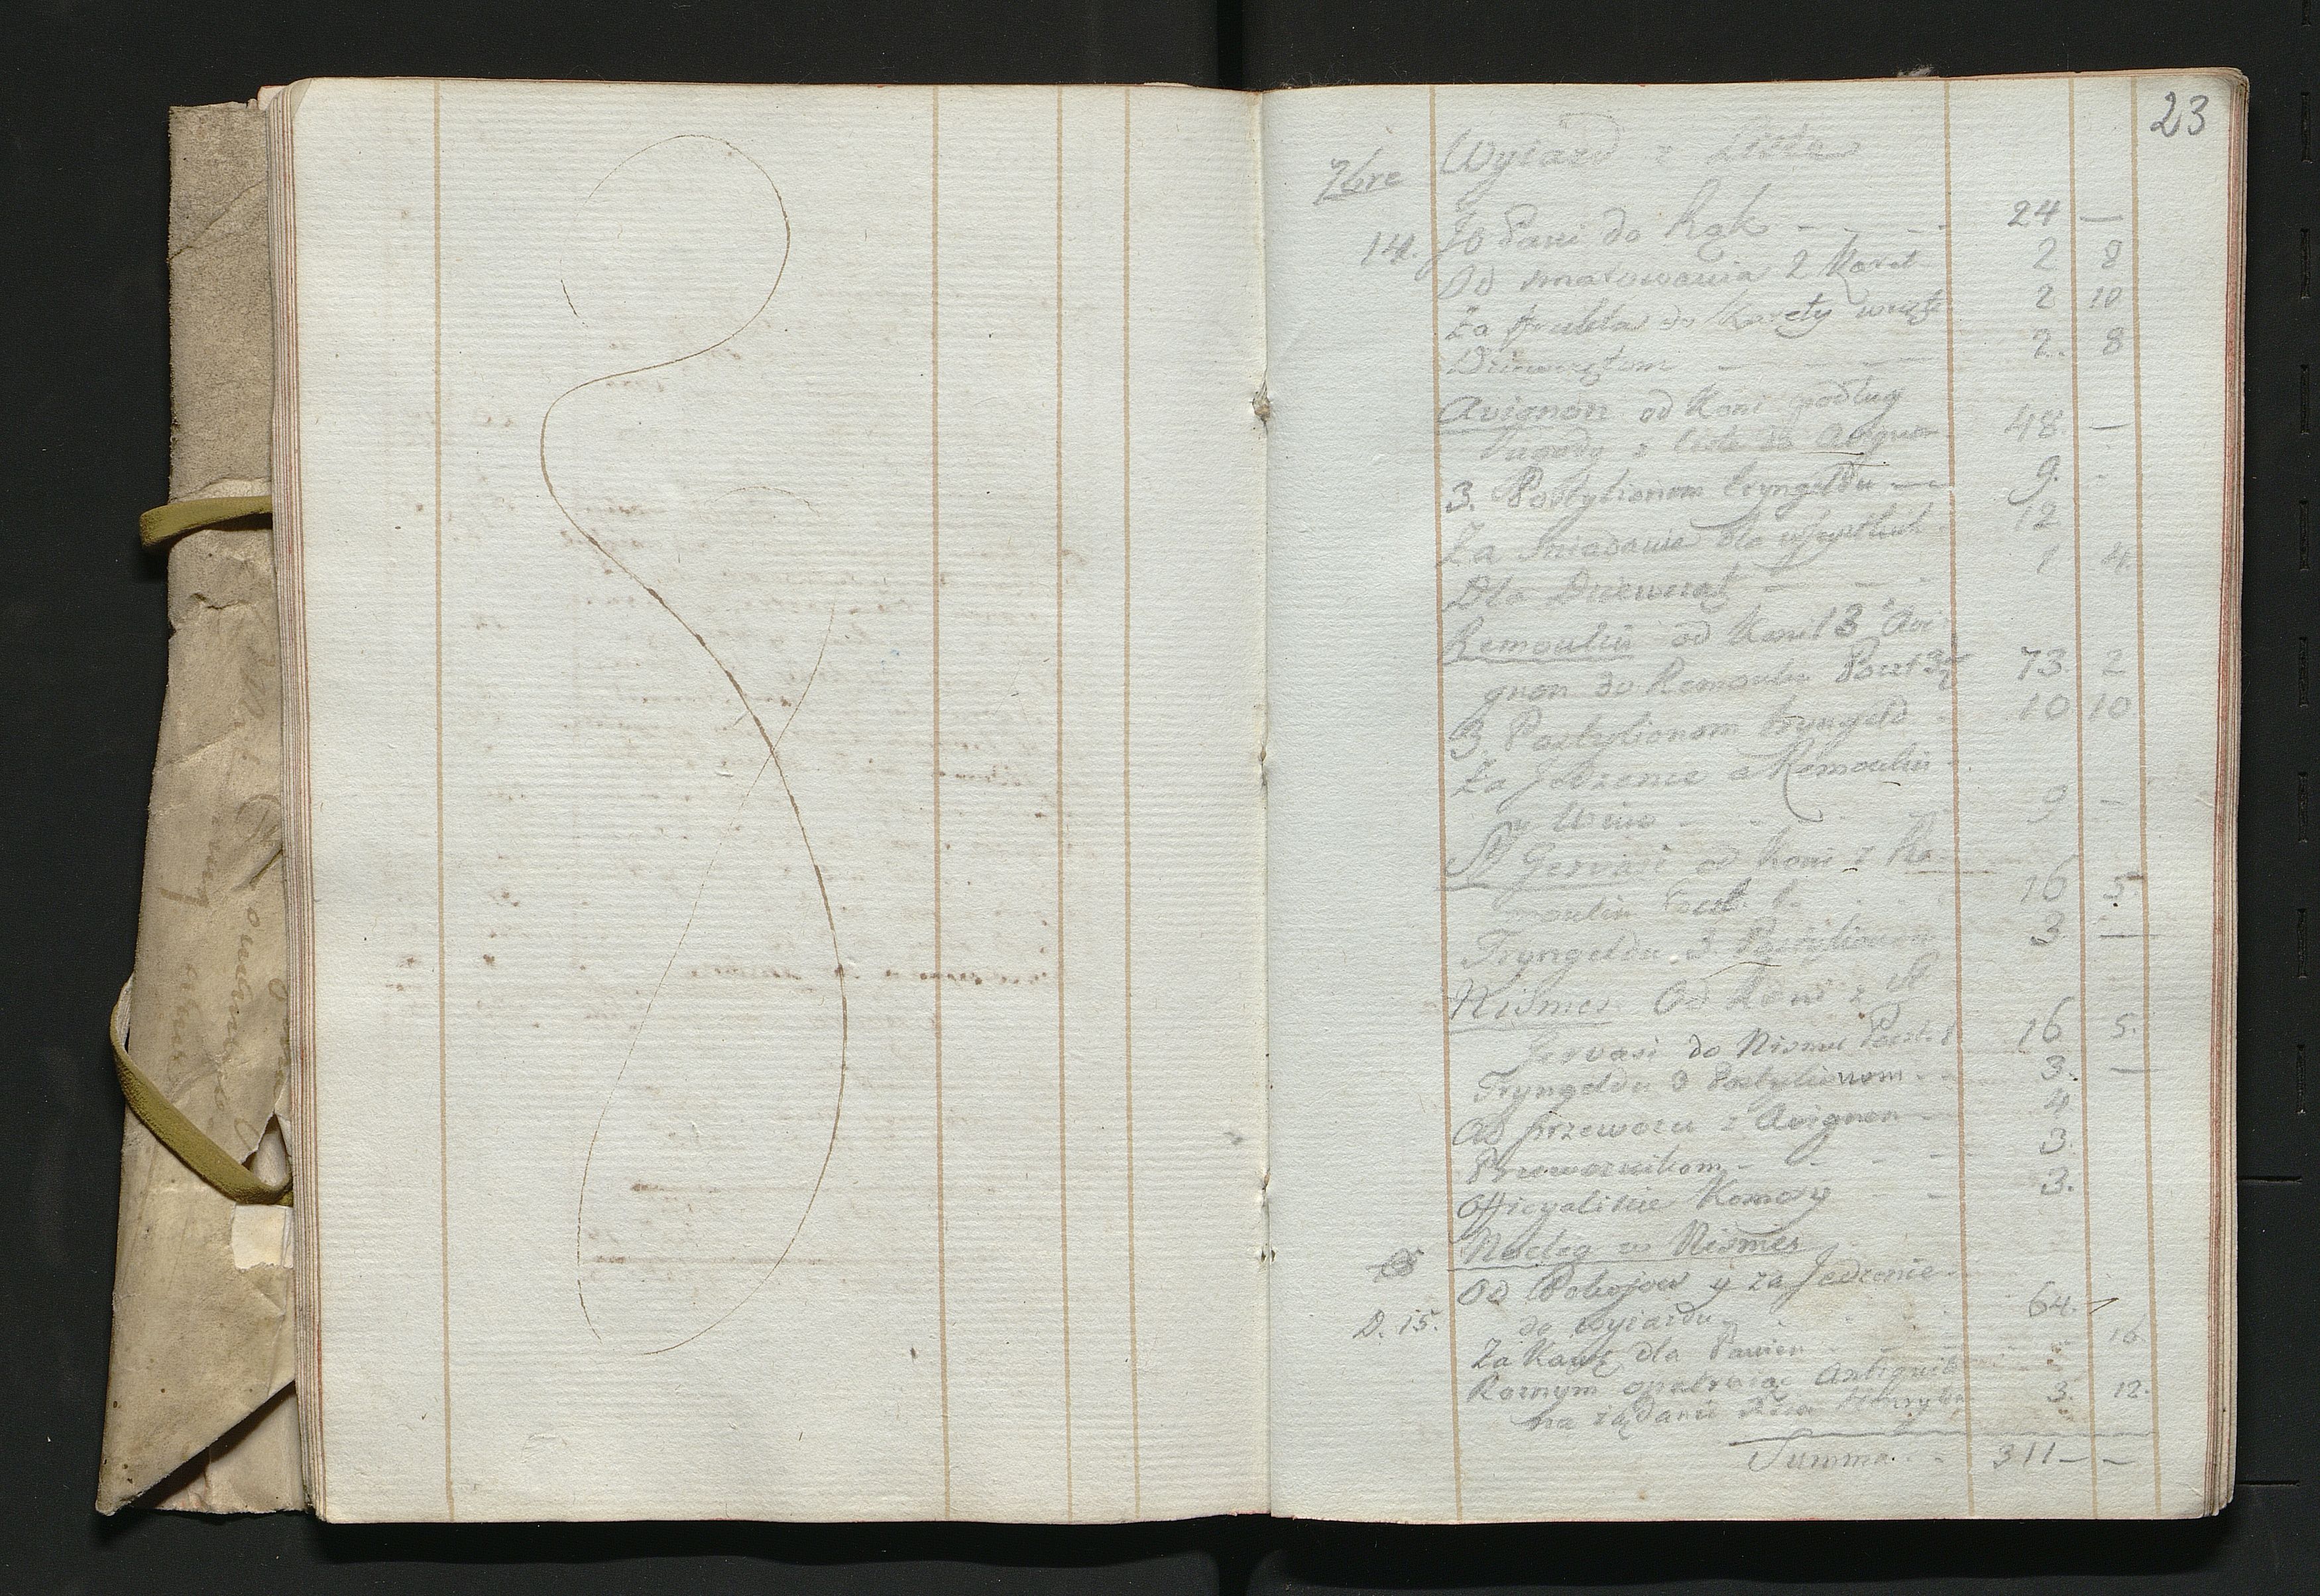 23
Wyiazd z Lisle
7bre
14. JO Pani do Rąk - - - 24 —
Od smarowania 2 Karet 2 8
Za frukta do Karety 2 10
Dziewczętom - - - 2. 8
Avignon od Koni podług
ugody z Lisle do Avignon 48 —
3. Postylionom tryngeldu — 9. -
Za Sniadanie dla wszystkich 12
Dla Dziewcząt - - 1 4.
Remoulin od Koni 13 z Avi-
gnon do Remoulin Poczt 3 73. 2
3. Postylionom tryngeld - 10 10
Za Jedzenie a Remoulin
y Wino - - - 9 -
St Gervasi od Koni z Re-
moulin Poczt. 1. 16 5.
Tryngeldu 3. Postylionom 3 —
Nismes Od Koni z St
Gervasi do Nismes Poczt. 1 16 5.
Tryngeldu 3 Postylionom - - 3. —
Od przewozu z Avignon 4
Przewoznikom - - - 3.
Officyalistce Komory - 3.
Nocleg w Nismes
Od Pokojow y za Jedzenie
D. 15. do wyiazdu - - 64. -
Za Kawę dla Panien 16
Roznym opatruiąc Antiquit
na żądanie 3. 12.
Summa. - 311 — -